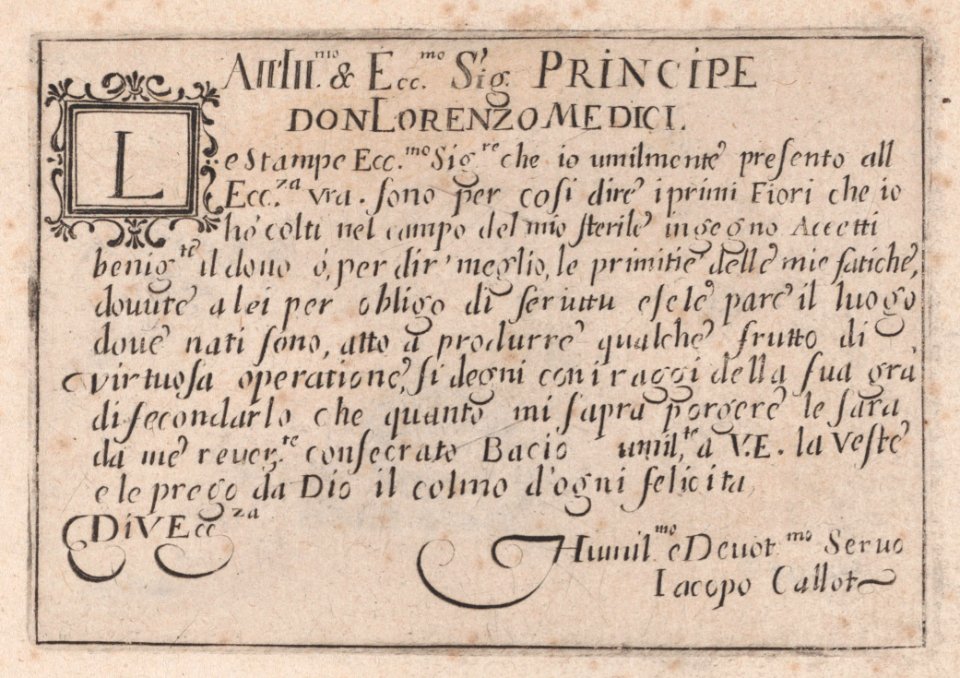 All Ill.mo & Ecc.mo Sig. PRINCIPE
DON LORENZO MEDICI.
Le Stampe Ecc.mo Sig.re che io umilmente presento all
Ecc.za vra. sono per cosi dire i primi Fiori che io
hò colti nel campo del mio sterile ingegno Accetti
benig.te il dono ò, per dir' meglio, le primitie delle mie fatiche,
dovute a lei per obligo di seruitu e se le pare il luogo
doue nati sono, atto à produrre qualche frutto di
virtuosa operatione, si degni con i raggi della sua grã
di secondarlo che quanto mi saprà porgere le sarà
da me reuer.te consecrato Bacio umil.te a V.E. la Veste
e le prego da Dio il colmo d'ogni felicità
Di V Ecc.za
Humil.mo e Deuot.mo Seruo
Iacopo Callot